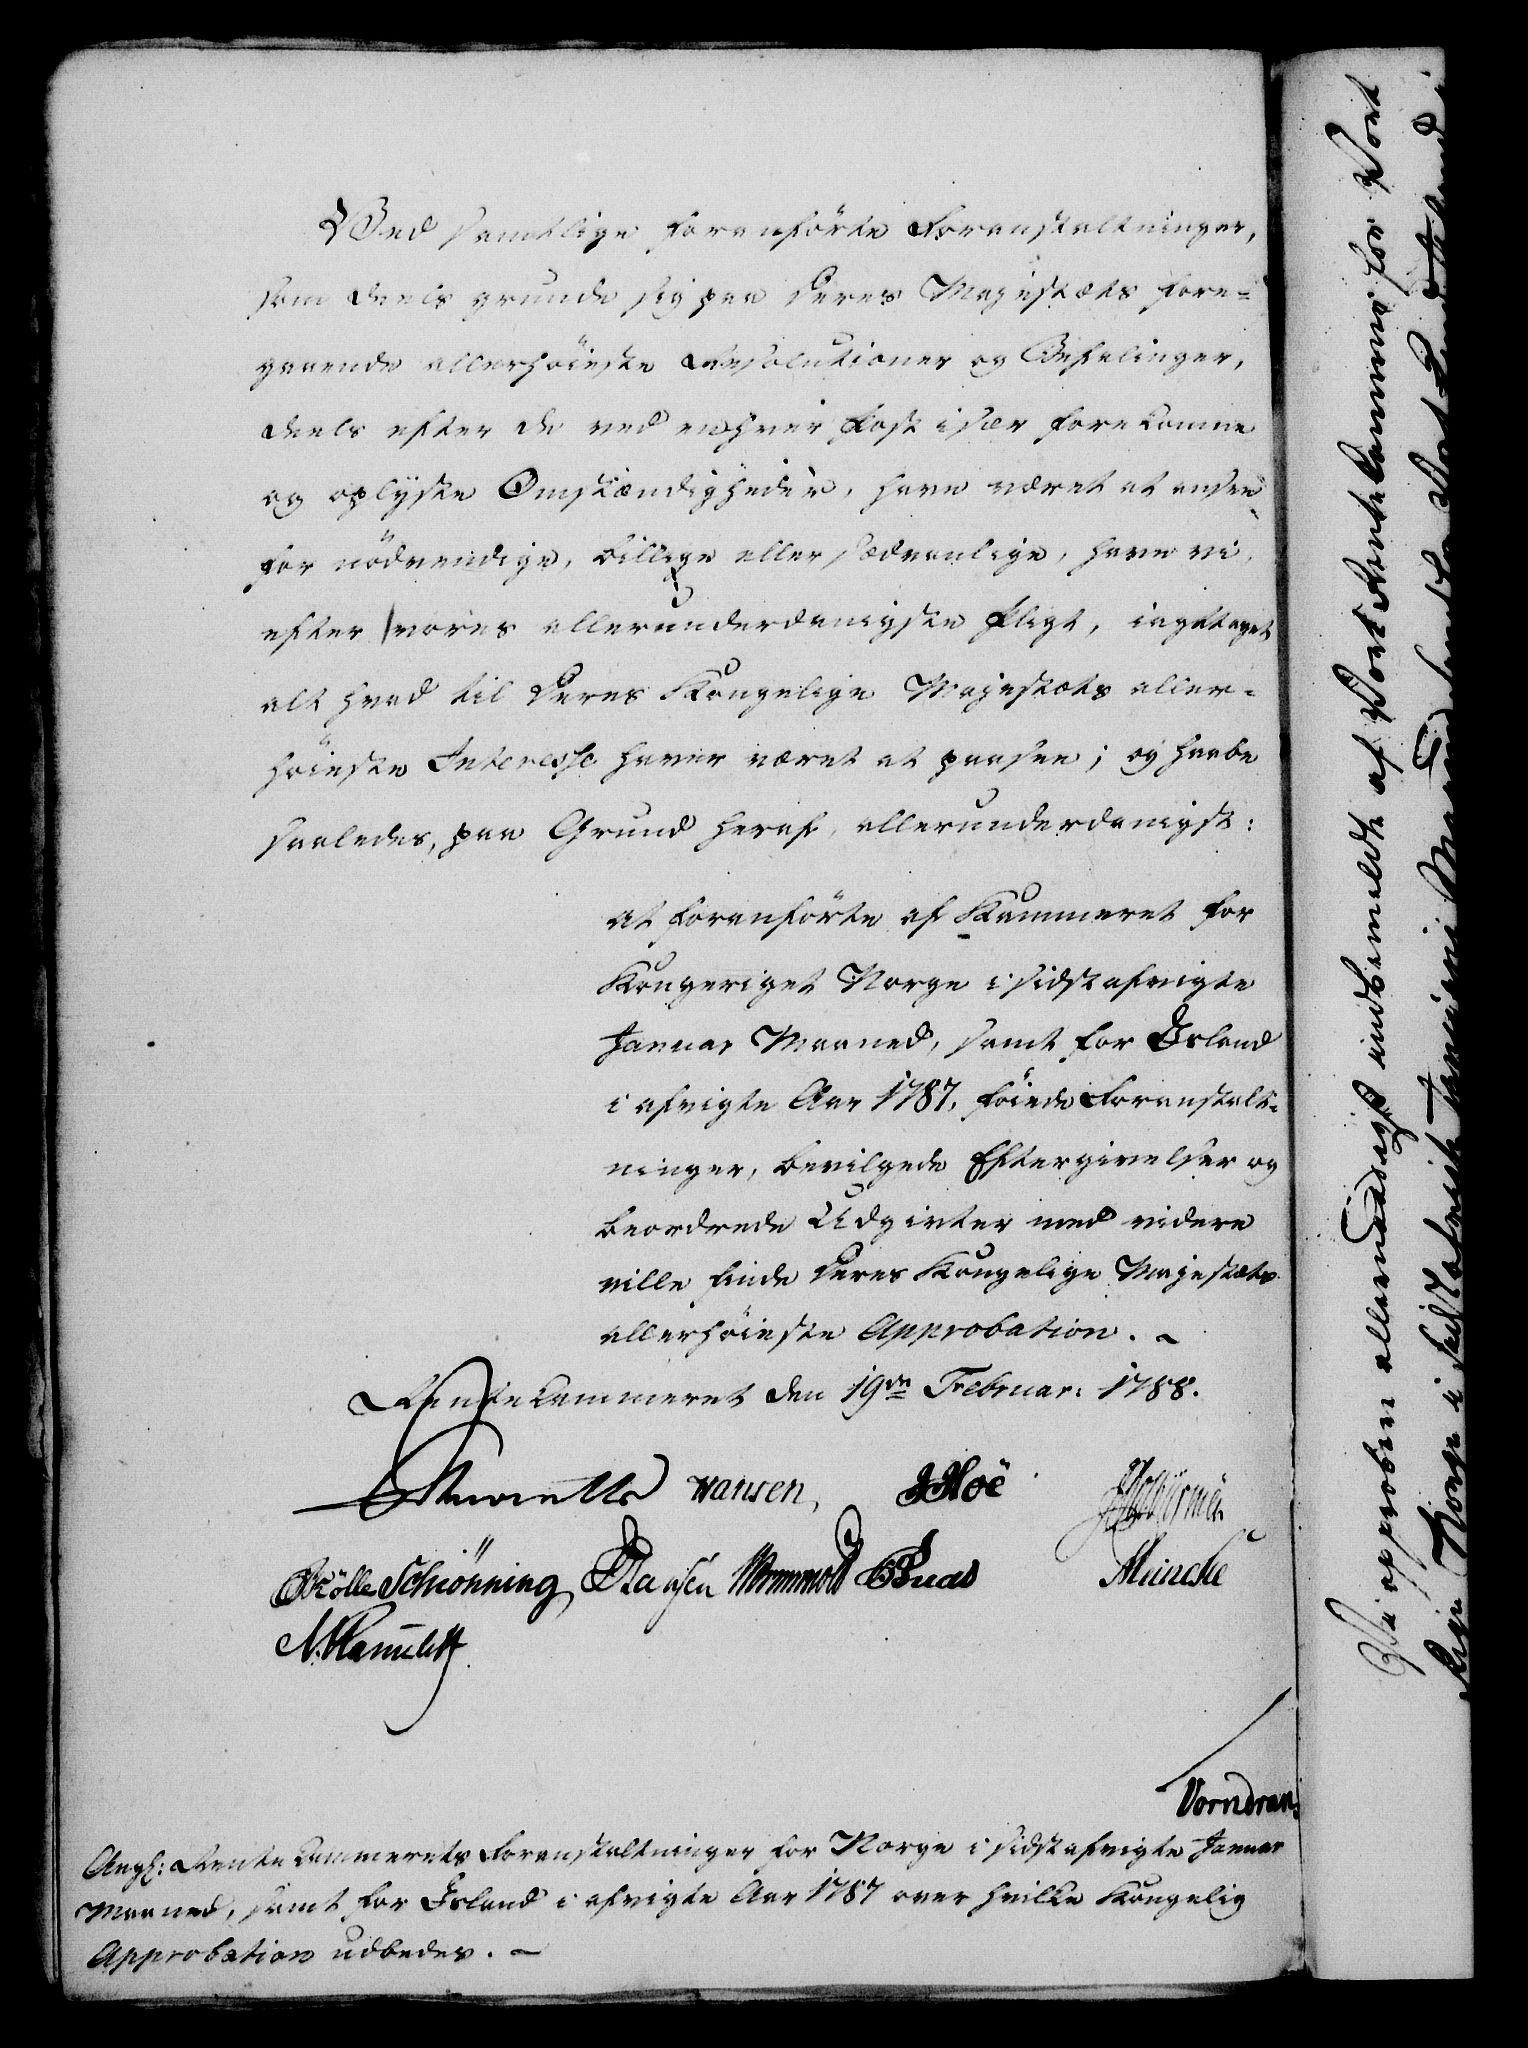 Ved samtlige foranførte Foranstaltninger,
som deels grunde sig paa Deres Majestæts fore-
gaaende allerhøieste Resolutioner og Befalinger,
deels efter de ved enhver Post især forekomne
og oplyste Omstændigheder, have været at ansee
for nödvendige, billige eller sædvanlige, have vi,
efter vores allerunderdanigste Pligt, iagttaget
alt hvad til Deres Kongelige Majestæts aller-
høieste Interesse haver været at paasee; og haabe
saaledes, paa Grund heraf, allerunderdanigst:
at foranførte af Kammeret for
Kongeriget Norge i sidstafvigte
Januar Maaned, samt for Island
i afvigte Aar 1787, føiede Foranstalt-
ninger, bevilgede Eftergivelser og
beordrede Udgivter med videre
ville finde Deres Kongelige Majestæts
allerhøieste Approbation. ~
Rentekammeret den 19de Februar: 1788.
Hansen, Hoë
Schiönning, Hansen Wormvold Müncke
Vorndran.
Angl: Rentekammerets Foranstaltninger for Norge i sidstafvigte Januar
Maaned, samt for Island i afvigte Aar 1787 over hvilke Kongelig
Approbation udbedes. ~
Vi approbere allernaadigst indbemeldte af Vort Rentekammer for Vort
Rige Norge i sidstafvigte Januarii Maaned